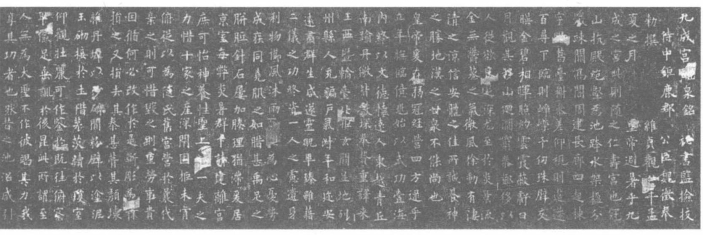 九成宮醴泉銘 秘書監檢校
侍中鉅鹿郡公臣魏徵奉
勅撰 維貞觀六年孟
夏之月 皇帝避暑乎九
成之宮此則隨之仁壽宮也冠
山抗殿絕壑為池跨水架楹分
巖竦闕高閣周建長廊四起棟
宇膠葛臺榭參差仰視則迢遰
百尋下臨則崢嶸千仞珠璧交
暎金碧相暉照灼雲霞蔽虧日
月觀其移山迴澗窮泰極侈以
人從欲良足深尤至於炎景流
金無欝蒸之氣微風徐動有淒
清之涼信安體之佳所誠養神
之勝地漢之甘泉不能尚也
皇帝爰在弱冠經營四方逮乎
立年撫臨億兆始以武功壹海
內終以文德懷遠人東越青丘
南踰丹儌皆獻琛奉贄重譯來
王西曁輪臺北拒玄闕並地列
州縣人充編戶氣淑年和邇安
遠肅群生咸遂靈貺畢臻雖藉
二儀之功終資一人之慮遺身
利物櫛風沐雨百姓為心憂勞
成疾同堯肌之如腊甚禹足之
胼胝針石屢加腠理猶滯爰居
京室每弊炎暑群下請建離宮
庶可怡神養性聖上愛一夫之
力惜十家之產深閉固拒未肯
俯從以為隨氏舊宮營於曩代
棄之則可惜毀之則重勞事貴
因循何必改作於是斫彫為樸
損之又損去其泰甚葺其頹壞
雜丹墀以沙礫間粉壁以塗泥
玉砌接於土階茅茨續於瓊室
仰觀壯麗可作鑒於既往俯察
卑儉足垂訓於後昆此所謂至
人無為大聖不作彼竭其力我
享其功者也然昔之池沼咸引